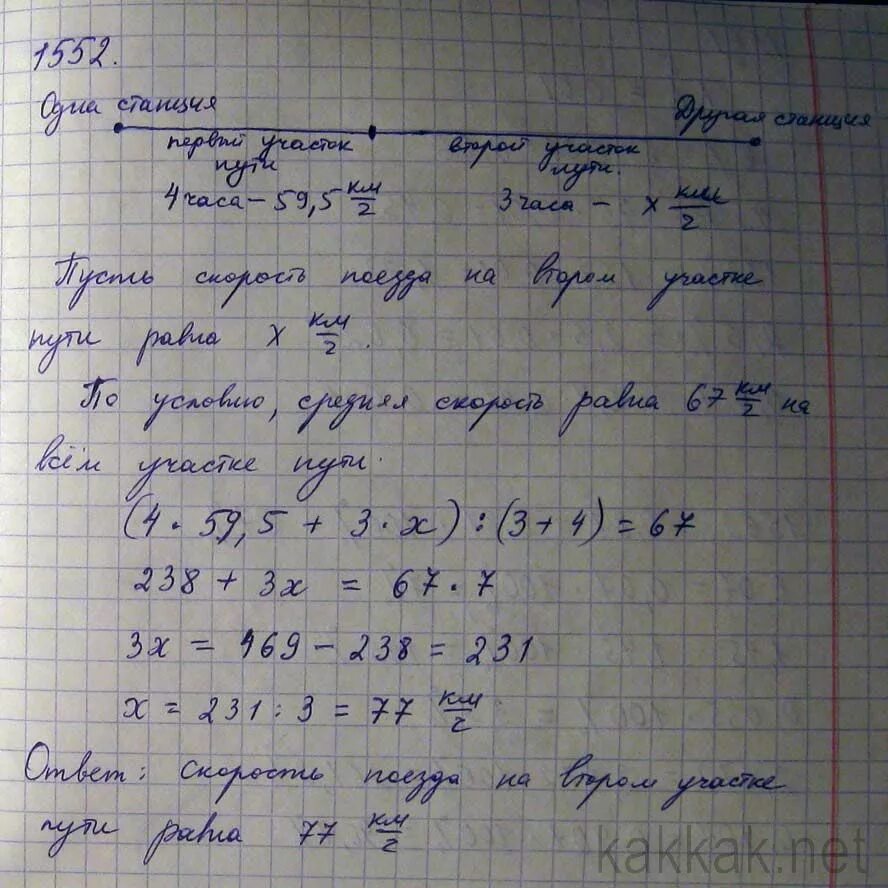 1552.
Одна станция Другая станция
первый участок второй участок
пути пути.
4 часа – 59,5 км/ч 3 часа – x км/ч
Пусть скорость поезда на втором участке
пути равна x км/ч.
По условию, средняя скорость равна 67 км/ч на
всём участке пути.
(4 · 59,5 + 3 · x) : (3 + 4) = 67
238 + 3x = 67 · 7
3x = 469 – 238 = 231
x = 231 : 3 = 77 км/ч
Ответ: скорость поезда на втором участке
пути равна 77 км/ч
kakkak.net